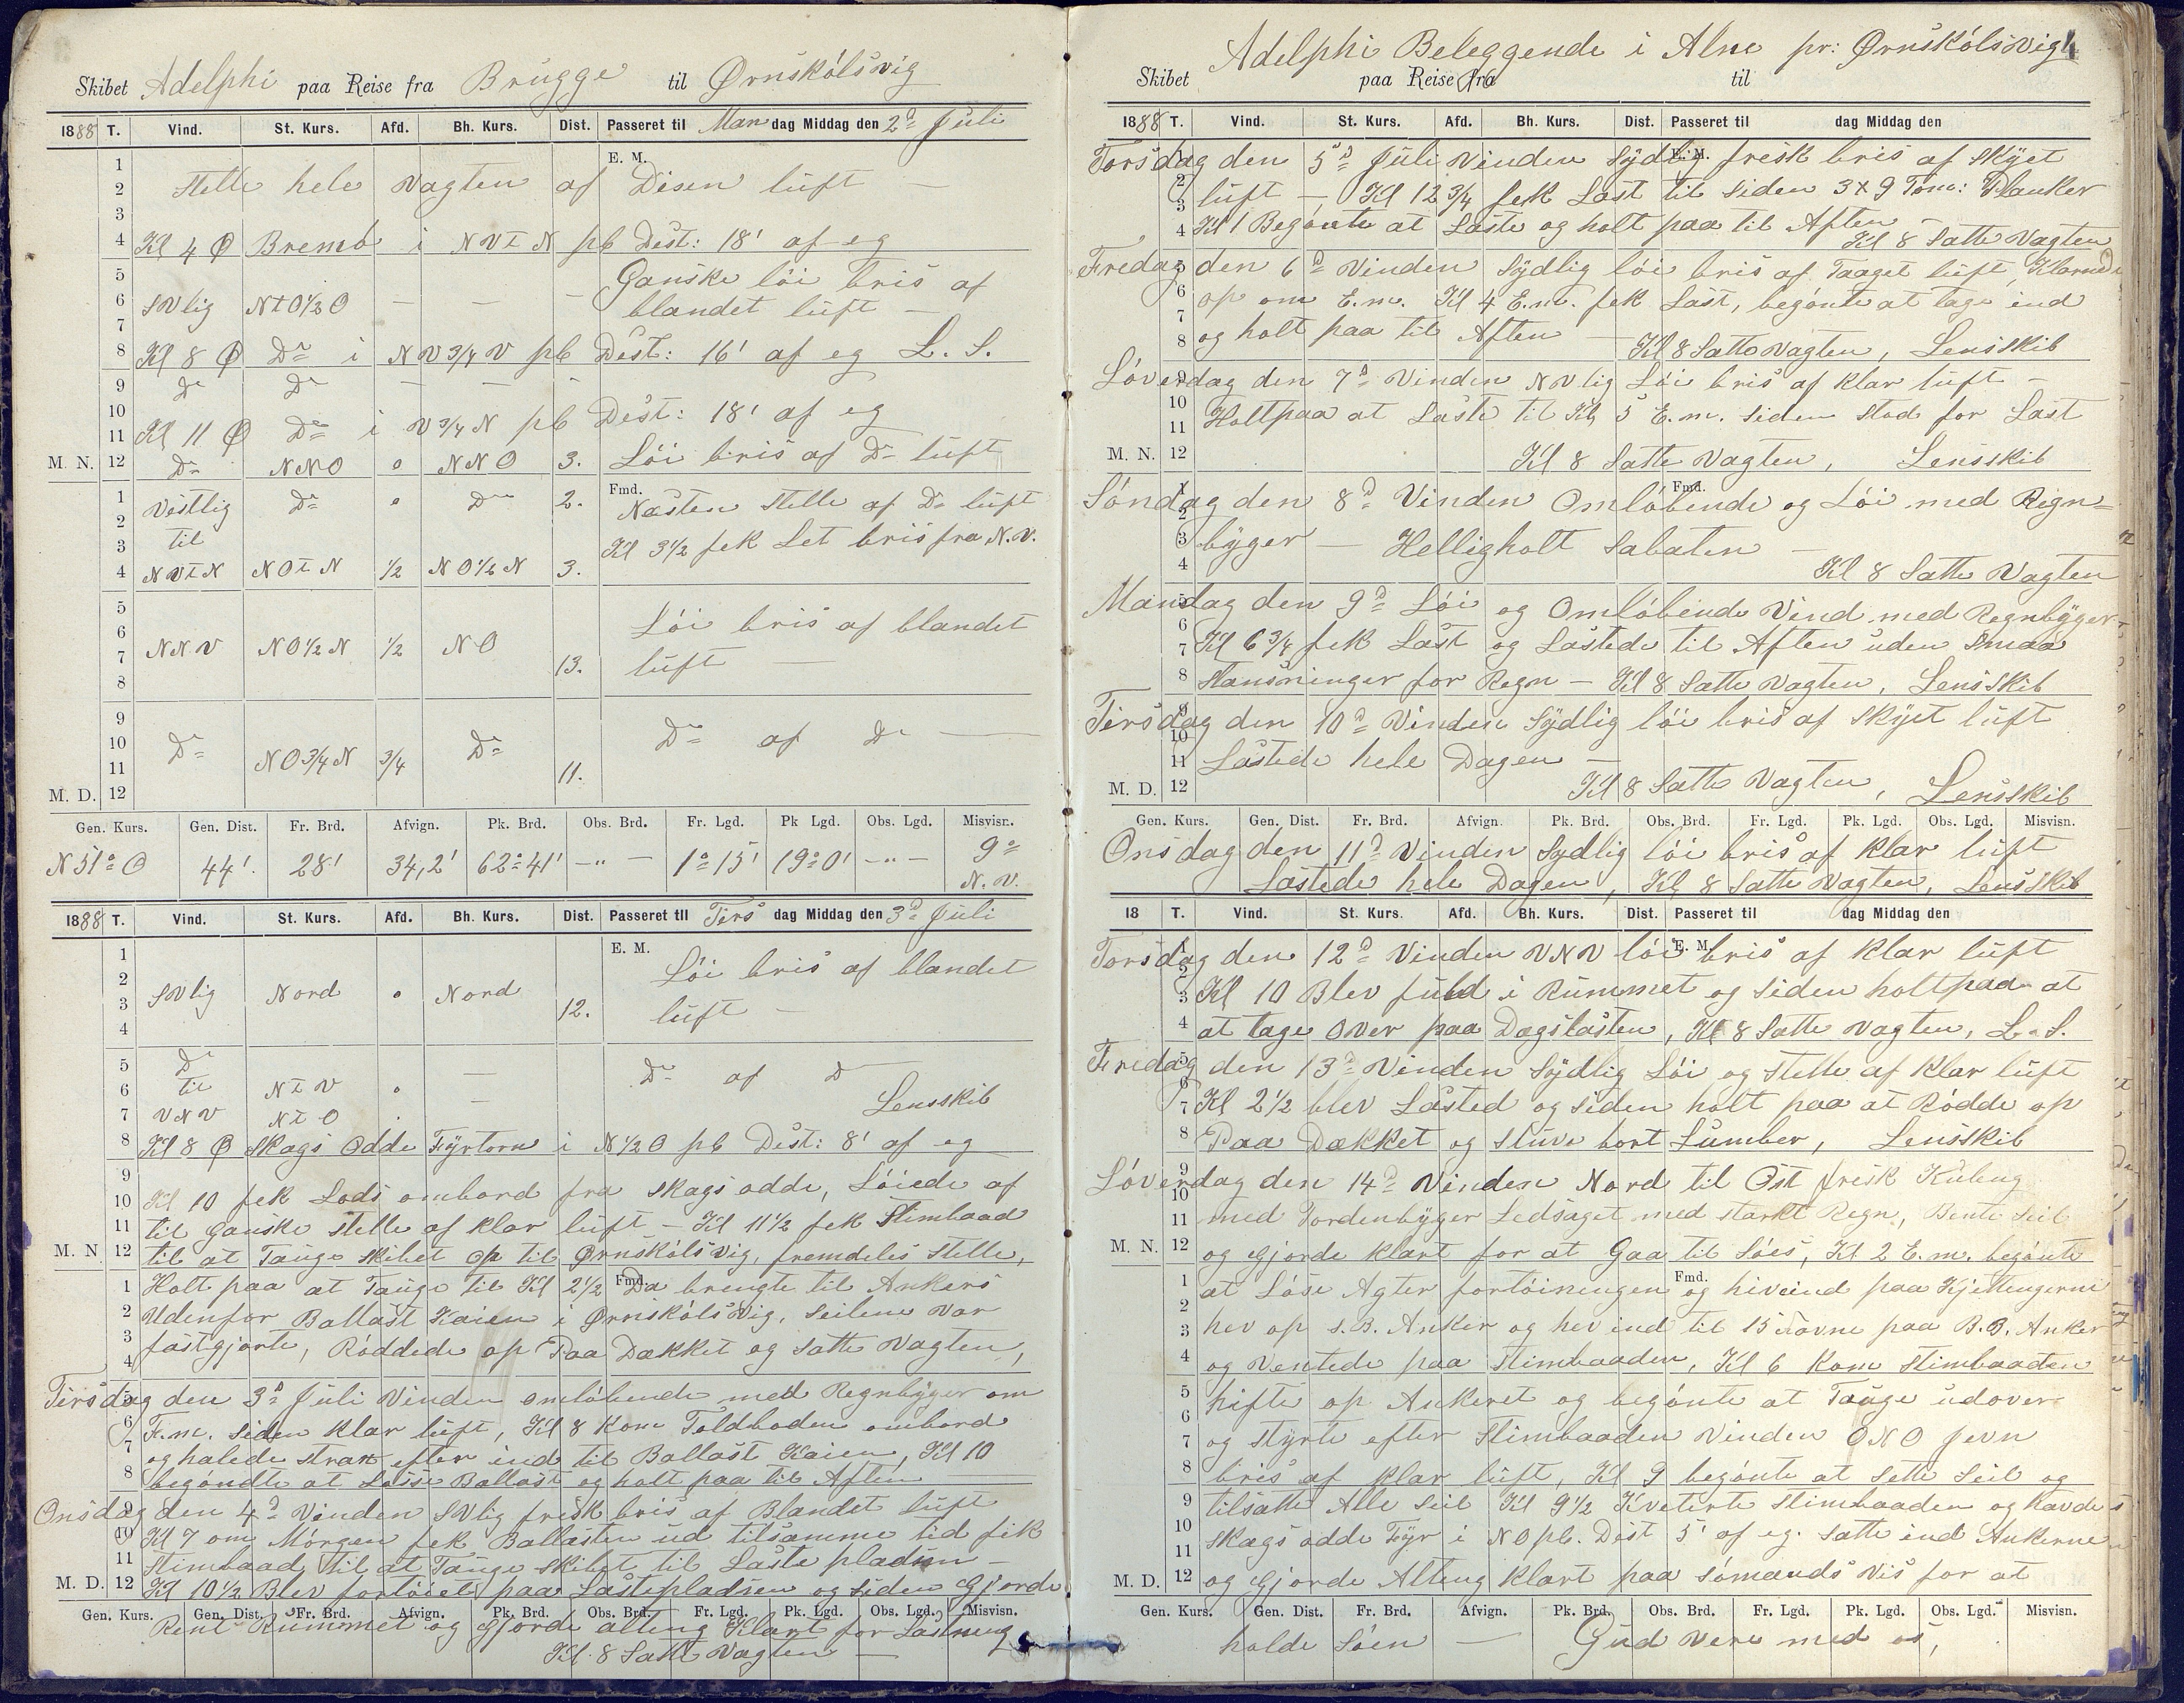 Skibet Adelphi paa Reise fra Brugge til Ørnskólsvig
1888 T. Vind. St. Kurs. Afd. Bh. Kurs. Dist. Passeret til Man dag Middag den 2d Juli
1 E. M.
2 Stelle hele Vagten af Disen lúft —
3
4 Kl 4 Ø Bremö i NVtN pb Dest: 18' af eg
5 Ganske lói bris af
6 SVlig NtO½O — — — blandet lúft —
7
8 Kl 8 Ø Do i NV¾V pb Dest: 16' af eg L. S.
9 Do Do — — —
10
11 Kl 11 Ø Do i V¾N pb Dest: 18' af eg
M. N. 12 Do NNO o NNO 3. Lói bris af Do lúft
1 Vestlig Do o Do 2. Fmd. Nästen Stelle af Do lúft
2 til
3 Kl 3½ fek Let bris fra N.V.
4 NVtN NOtN ½ NO½N 3.
5
6 Lói bris af blandet
7 NNV NO½N ½ NO 13. lúft —
8
9
10 Do NO¾N ¾ Do Do af Do —
11 11.
M. D. 12
Gen. Kurs. Gen. Dist. Fr. Brd. Afvign. Pk. Brd. Obs. Brd. Fr. Lgd. Pk Lgd. Obs. Lgd. Misvisn.
N 51° O 44'. 28' 34,2' 62°41' -"- 1°15' 19°0' -"- 9° N.V.
1888 T. Vind. St. Kurs. Afd. Bh. Kurs. Dist. Passeret til Tirs dag Middag den 3d Júli
1 E. M.
2 Lói bris af blandet
3 SVlig Nord o Nord 12. lúft —
4
5 Do
6 til NtV o — Do af Do
7 VNV NtO . — Lensskib
8 Kl 8 Ø Skags Odde Fyrtorn i N½O pb Dest: 8' af eg
9
10 Kl 10 fek Lods ombord fra Skags odde, Lóiede af
11 til ganske stelle af klar lúft — Kl 11½ fek Stimbaad
M. N 12 til at Taúge Skibet op til Ørnskólsvig, fremdeles Stelle,
1 Holt paa at Taúge til Kl 2½ Fmd. Da brengte til Ankers
2 Udenfor Ballast Kaien i Ørnskólsvig, Seilene var
3 fastgjorte, Róddede op Paa Dækket og Satte Vagten,
4
Tirsdag den 3d Júli Vinden omlóbende med Regnbýger om
6 F.m. siden klar lúft, Kl 8 Kom Toldboden ombord
7 og halede strax efter ind til Ballast Kaien, Kl 10
8 begóndte at Losse Ballast og holt paa til Aften
Onsdag den 4d Vinden SVlig frisk bris af Blandet lúft
10 Kl 7 om Mórgen fek Ballasten ud tilsamme tid fik
11 Stimbaad til at Taúge Skibet til Laste pladsen —
M. D. 12 Kl 10½ Blev fortóiet paa Lastepladsen og siden Gjorde
Gen. Kurs. Gen. Dist. Fr. Brd. Afvign. Pk. Brd. Obs. Brd. Fr. Lgd. Pk. Lgd. Obs. Lgd. Misvisn.
Rent Rúmmet og Gjorde alting Klart for Lastning
Kl 8 Satte Vagten —
Adelphi Beleggende i Alne pr: Ørnskólsvig
Skibet paa Reise fra til
1888 T. Vind. St. Kurs. Afd. Bh. Kurs. Dist. Passeret til dag Middag den
Torsdag den 5d Júli Vinden Sýdlig frisk bris af Skýet E. M.
2
3 lúft — Kl 12¾ fek Last til Siden 3x9 Tom: Planker
4 Kl 1 Begónte at Laste og holt paa til Aften —
Kl 8 Satte Vagten
Fredag den 6d Vinden Sýdlig lói bris af Taaget lúft, Klarnede
6 op om E.m. Kl 4 E.m. fek Last, begónte at tage ind
7
8 og holt paa til Aften — Kl 8 Satte Vagten, Lensskib
Lóverdag den 7d Vinden NVlig Lói bris af klar lúft —
10
11 Holt paa at Laste til Kl 5 E.m. Siden stod for Last
M. N. 12 Kl 8 Satte Vagten, Lensskib
Sóndag den 8d Vinden Omlóbende og Lói med Regn= Fmd.
2
3 býger — Helligholt Sabaten —
4 Kl 8 Satte Vagten
Mandag den 9d Lói og Omlóbende Vind med Regnbýger
6
7 Kl 6¾ fek Last og Lastede til Aften uden Smaa
8 Stansninger for Regn — Kl 8 Satte Vagten, Lensskib
Tirsdag den 10d Vinden Sýdlig lói bris af Skýet lúft
10
11 Lastede hele Dagen —
M. D. 12 Kl 8 Satte Vagten, Lensskib
Gen. Kurs. Gen. Dist. Fr. Brd. Afvign. Pk. Brd. Obs. Brd. Fr. Lgd. Pk. Lgd. Obs. Lgd. Misvisn.
Onsdag den 11d Vinden Sydlig lói bris af klar lúft
Lastede hele Dagen, Kl 8 Satte Vagten, Lensskib
18 T. Vind. St. Kurs. Afd. Bh. Kurs. Dist. Passeret til dag Middag den
Torsdag den 12d Vinden VNV lói bris af klar lúft E. M.
2
3 Kl 10 Blev fúld i Rúmmet og siden holt paa at
4 at tage over paa Dægslasten, Kl 8 Satte Vagten, L.S.
Fredag den 13d Vinden Sýdlig Lói og Stelle af klar lúft
6
7 Kl 2½ blev Lasted og siden holt paa atRódde op
8 Paa Dækket og Stúve bort Lúmber, Lensskib
9
Lóverdag den 14d Vinden Nord til Ost frisk Kúling
10
11 med Tordenbýger Ledsaget med stærkt Regn, Bente Seil
M. N. 12 og Gjorde klart for at Gaa til Sóes, Kl 2 E.m. begónte
1 at Lóse Agter fortóiningen Fmd. og hive ind paa Kjettingerne
2
3 hev op S.B. Anker og hev ind til 15 Favne paa B.B. Anker
4 og Ventede paa Stimbaaden, Kl 6 Kom Stimbaaden
5 hifte op Ankeret og begónte at Taúge udover
6
7 og Stýrte efter Stimbaaden Vinden ONO jevn
8 bris af klar lúft, Kl 9 begónte at Sette Seil og
9 tilsatte Alle Seil Kl 9½ Kveterte Stimbaaden og havde
10 Skags odde Fýr i NO pb. Dest 5' af eg. Satte ind Ankerne
11
M. D. 12 og Gjorde Alting klart paa Sómands Vis for at
Gen. Kurs. Gen. Dist. Fr. Brd. Afvign. Pk. Brd. Obs. Brd. Fr. Lgd. Pk. Lgd. Obs. Lgd. Misvisn.
holde Sóen — Gud vere med os,